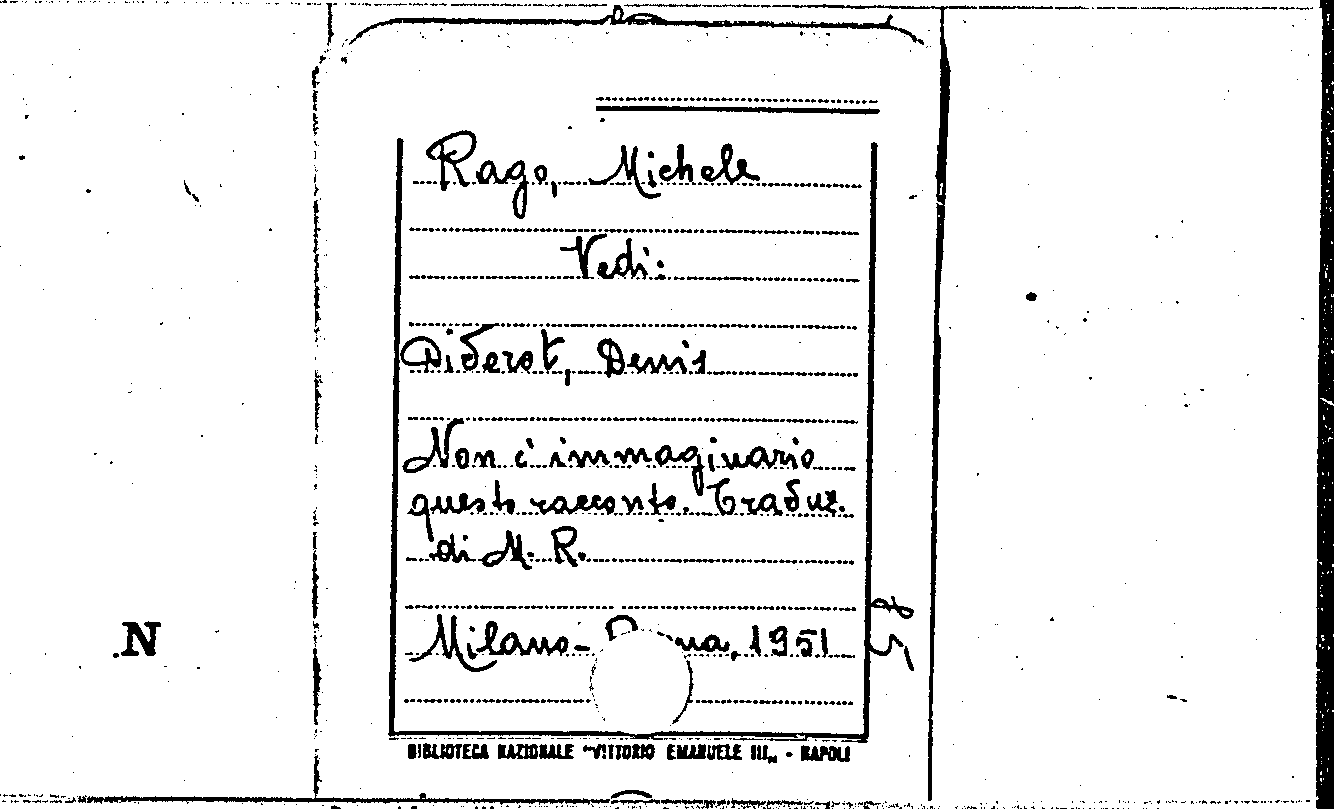 Rago, Michele
Vedi:
Diderot, Denis
Non è immaginario
questo racconto. Traduz.
di M. R.
Milano- 1951
N
BIBLIOTECA NAZIONALE "VITTORIO EMANUELE III„ - NAPOLI